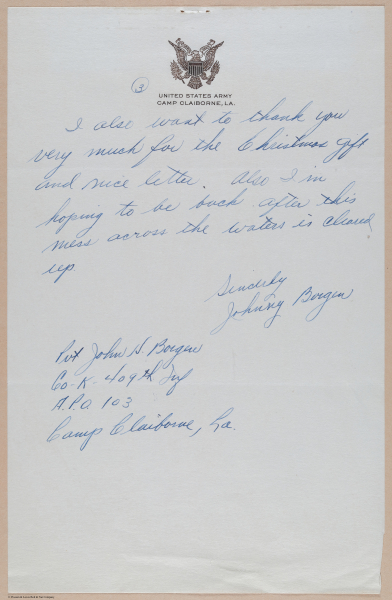 3
UNITED STATES ARMY
CAMP CLAIBORNE, LA.
I also want to thank you
very much for the Christmas gift
and nice letter. Also I'm
hoping to be back after this
mess across the waters is cleared
up.
Sincerely
Johnny Borgen
Pvt John H. Borgen
Co-K-409th Inf
A.P.O 103
Camp Claiborne, La.